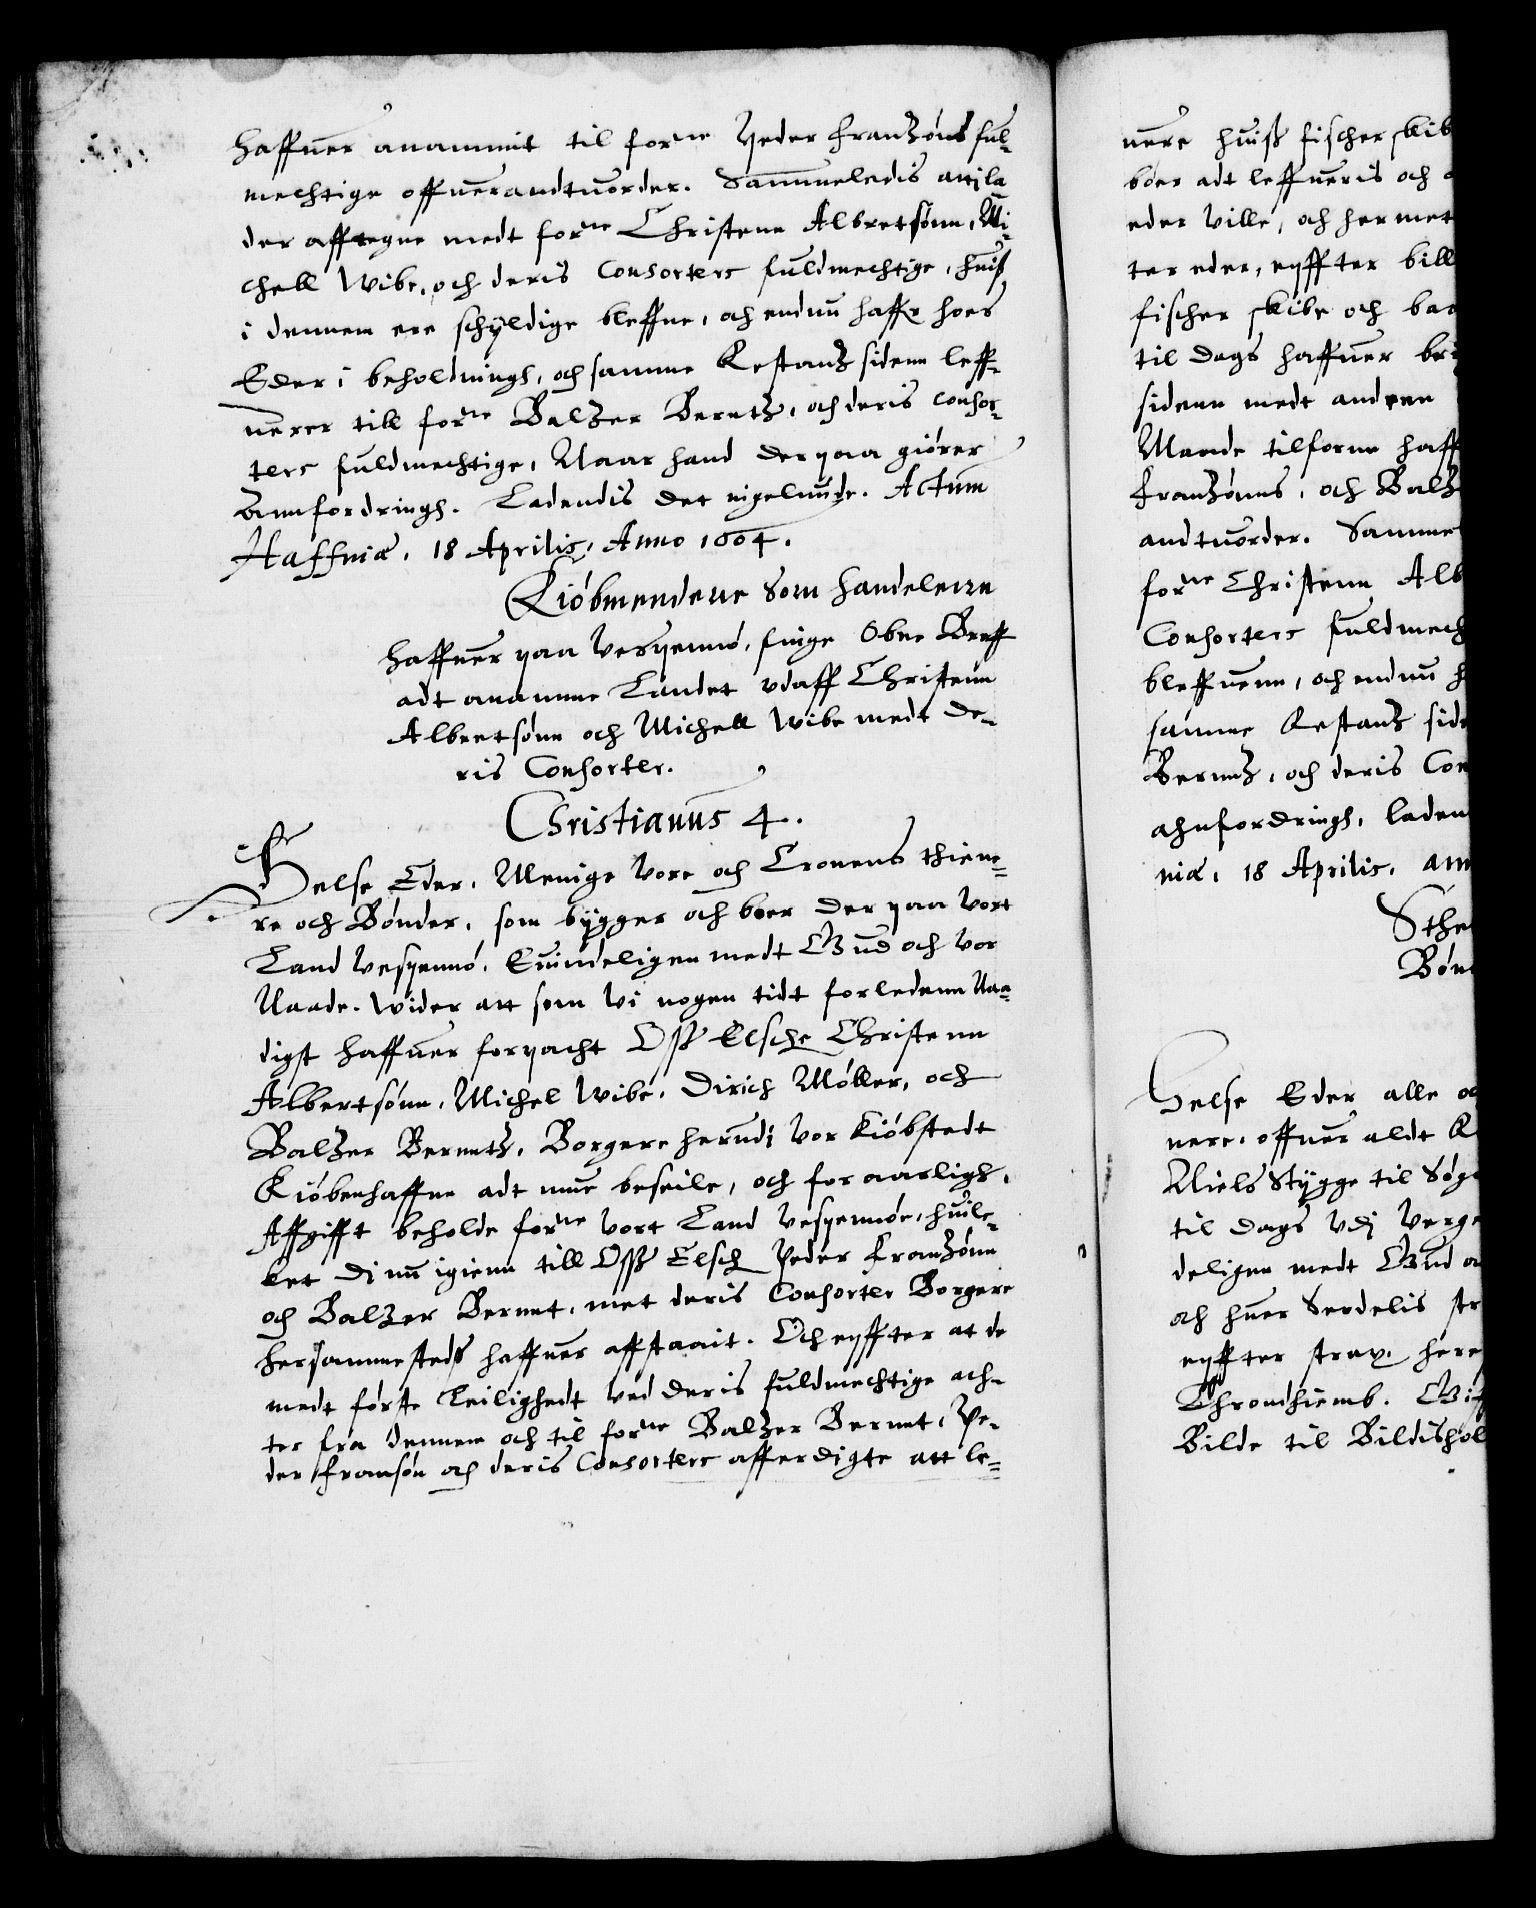 haffuer anammit til forne Peder Franzøns ful¬
mechtige offuerandtuorder. Sammeledis attj la¬
der affregne medt forne Christenn Albretsønn, Mi¬
chell Wibe, och deris Consorters fuldmechtige, huis
i dennem ere schyldige bleffne, och endnu haffr hoes
Eder i beholdningh, och samme Restantz sidenn leff¬
uerer till forne Baltzer Berntz, och deris Consor¬
ters fuldmechtige, Naar hand der paa giører
Annfordringh. Ladendis det ingelunde. Actum
Haffniæ, 18 Aprilis, Anno 1604.
Kiøbmendene som handelenn
haffuer paa Vespennø, finge Obne Breff
adt anamme Landet vdaff Christenn
Albretsønn och Michell Wibe medt de¬
ris Consorter.
Christianus 4.
Helse Eder, Menige vore och Cronens thiene¬
re och Bønder, som bygger och boer der paa vort
Land Vespennø, Euindeligen medt Gud och vor
Naade. Wider att som vi nogen tidt forledenn Naa¬
digst haffuer forpacht Oss Elsche Christenn
Albertsønn, Michel Wibe, Dirich Møller, och
Baltzer Berntz, Borgere herudi vor Kiøbstedt
Kiøbenhaffne adt mue beseile, och for aarligh
Affgifft beholde forne vort Land Vespennøe, huil¬
ket di nu igienn till Oss Elsch Peder Franzønn
och Baltzer Bernt, met deris Consorter Borgere
hersammesteds haffuer affstaait. Och epffter at de
medt første Leilighedt ved deris fuldmechtige ach¬
ter fra dennem och til forne Baltzer Bernt, Pe¬
der Fransøn och deris Consorters afferdigte att le¬
uere huiss fischer skib
boer adt leffueris och
eder ville, och her met
ter eder, epffter bill
fischer skibe och baa
til dags haffuer
sidenn medt andenn
Maade tilforne haff
Franzønns, och Baltz
andtuorder. Samme
forne Christenn Alb
Consorters fuldmech
bleffuenn, och endnu h
samme Restantz side
Berntz, och deris Con
ahnfordringh, laden
niæ, 18 Aprilis, ann
Sthe
Bøn
Helse Eder alle oc
nere, offuer aldt
Niels Stygge til Søg
til dags vdj Verge
deligen medt Gud o
och huer Serdelis str
epffter strax, here
Throndhiemb.
Bilde til Bildishol